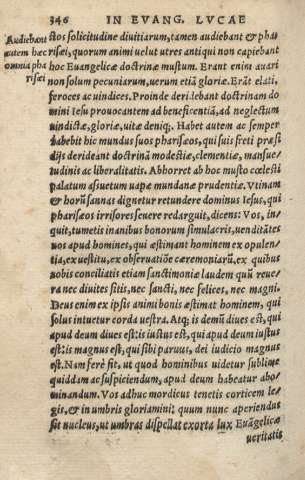 346 IN EVANG. LVCAE
Audiebant
autem hæc
omnia pha
risæi
ctos solicitudine diuitiarum, tamen audiebant & pha
risæi, quorum animi uelut utres antiqui non capiebant
hoc Euangelicæ doctrinæ mustum. Erant enim auari
non solum pecuniarum, uerum etiā gloriæ. Erāt elati,
feroces ac uindices. Proinde deridebant doctrinam do
mini Iesu prouocantem ad beneficentiā, ad neglectum
uindictæ, gloriæ, uitæ deniq;. Habet autem ac semper
habebit hic mundus suos pharisæos, qui suis freti præsi
dijs derideant doctrinā modestiæ, clementiæ, mansue/
tudinis ac liberalitatis. Abhorret ab hoc musto cœlesti
palatum assuetum uapæ mundanæ prudentiæ. Vtinam
& horū sannas dignetur retundere dominus Iesus, qui
pharisæos irrisores seuere redarguit, dicens: Vos, in/
quit, tumetis inanibus bonorum simulacris, uendítātes
uos apud homines, qui æstimant hominem ex opulen/
tia, ex uestitu, ex obseruatiōe cæremoniarū, ex quibus
uobis conciliatis etiam sanctimoniæ laudem quū reue/
ra nec diuites sitis, nec sancti, nec felices, nec magni.
Deus enim ex ipsis animi bonis æstimat hominem, qui
solus intuetur corda uestra. Atq; is demū diues est, qui
apud deum diues est: is iustus est, qui apud deum iustus
est: is magnus est, qui sibi paruus, dei iudicio magnus
est. Nam ferè fit, ut quod hominibus uidetur sublime
quiddam ac suspiciendum, apud deum habeatur abo/
minandum. Vos adhuc mordicus tenetis corticem le/
gis, & in umbris gloriamini: quum nunc aperiendus
sit nucleus, ut umbras dispellat exorta lux Euāgelicæ
ueritatis